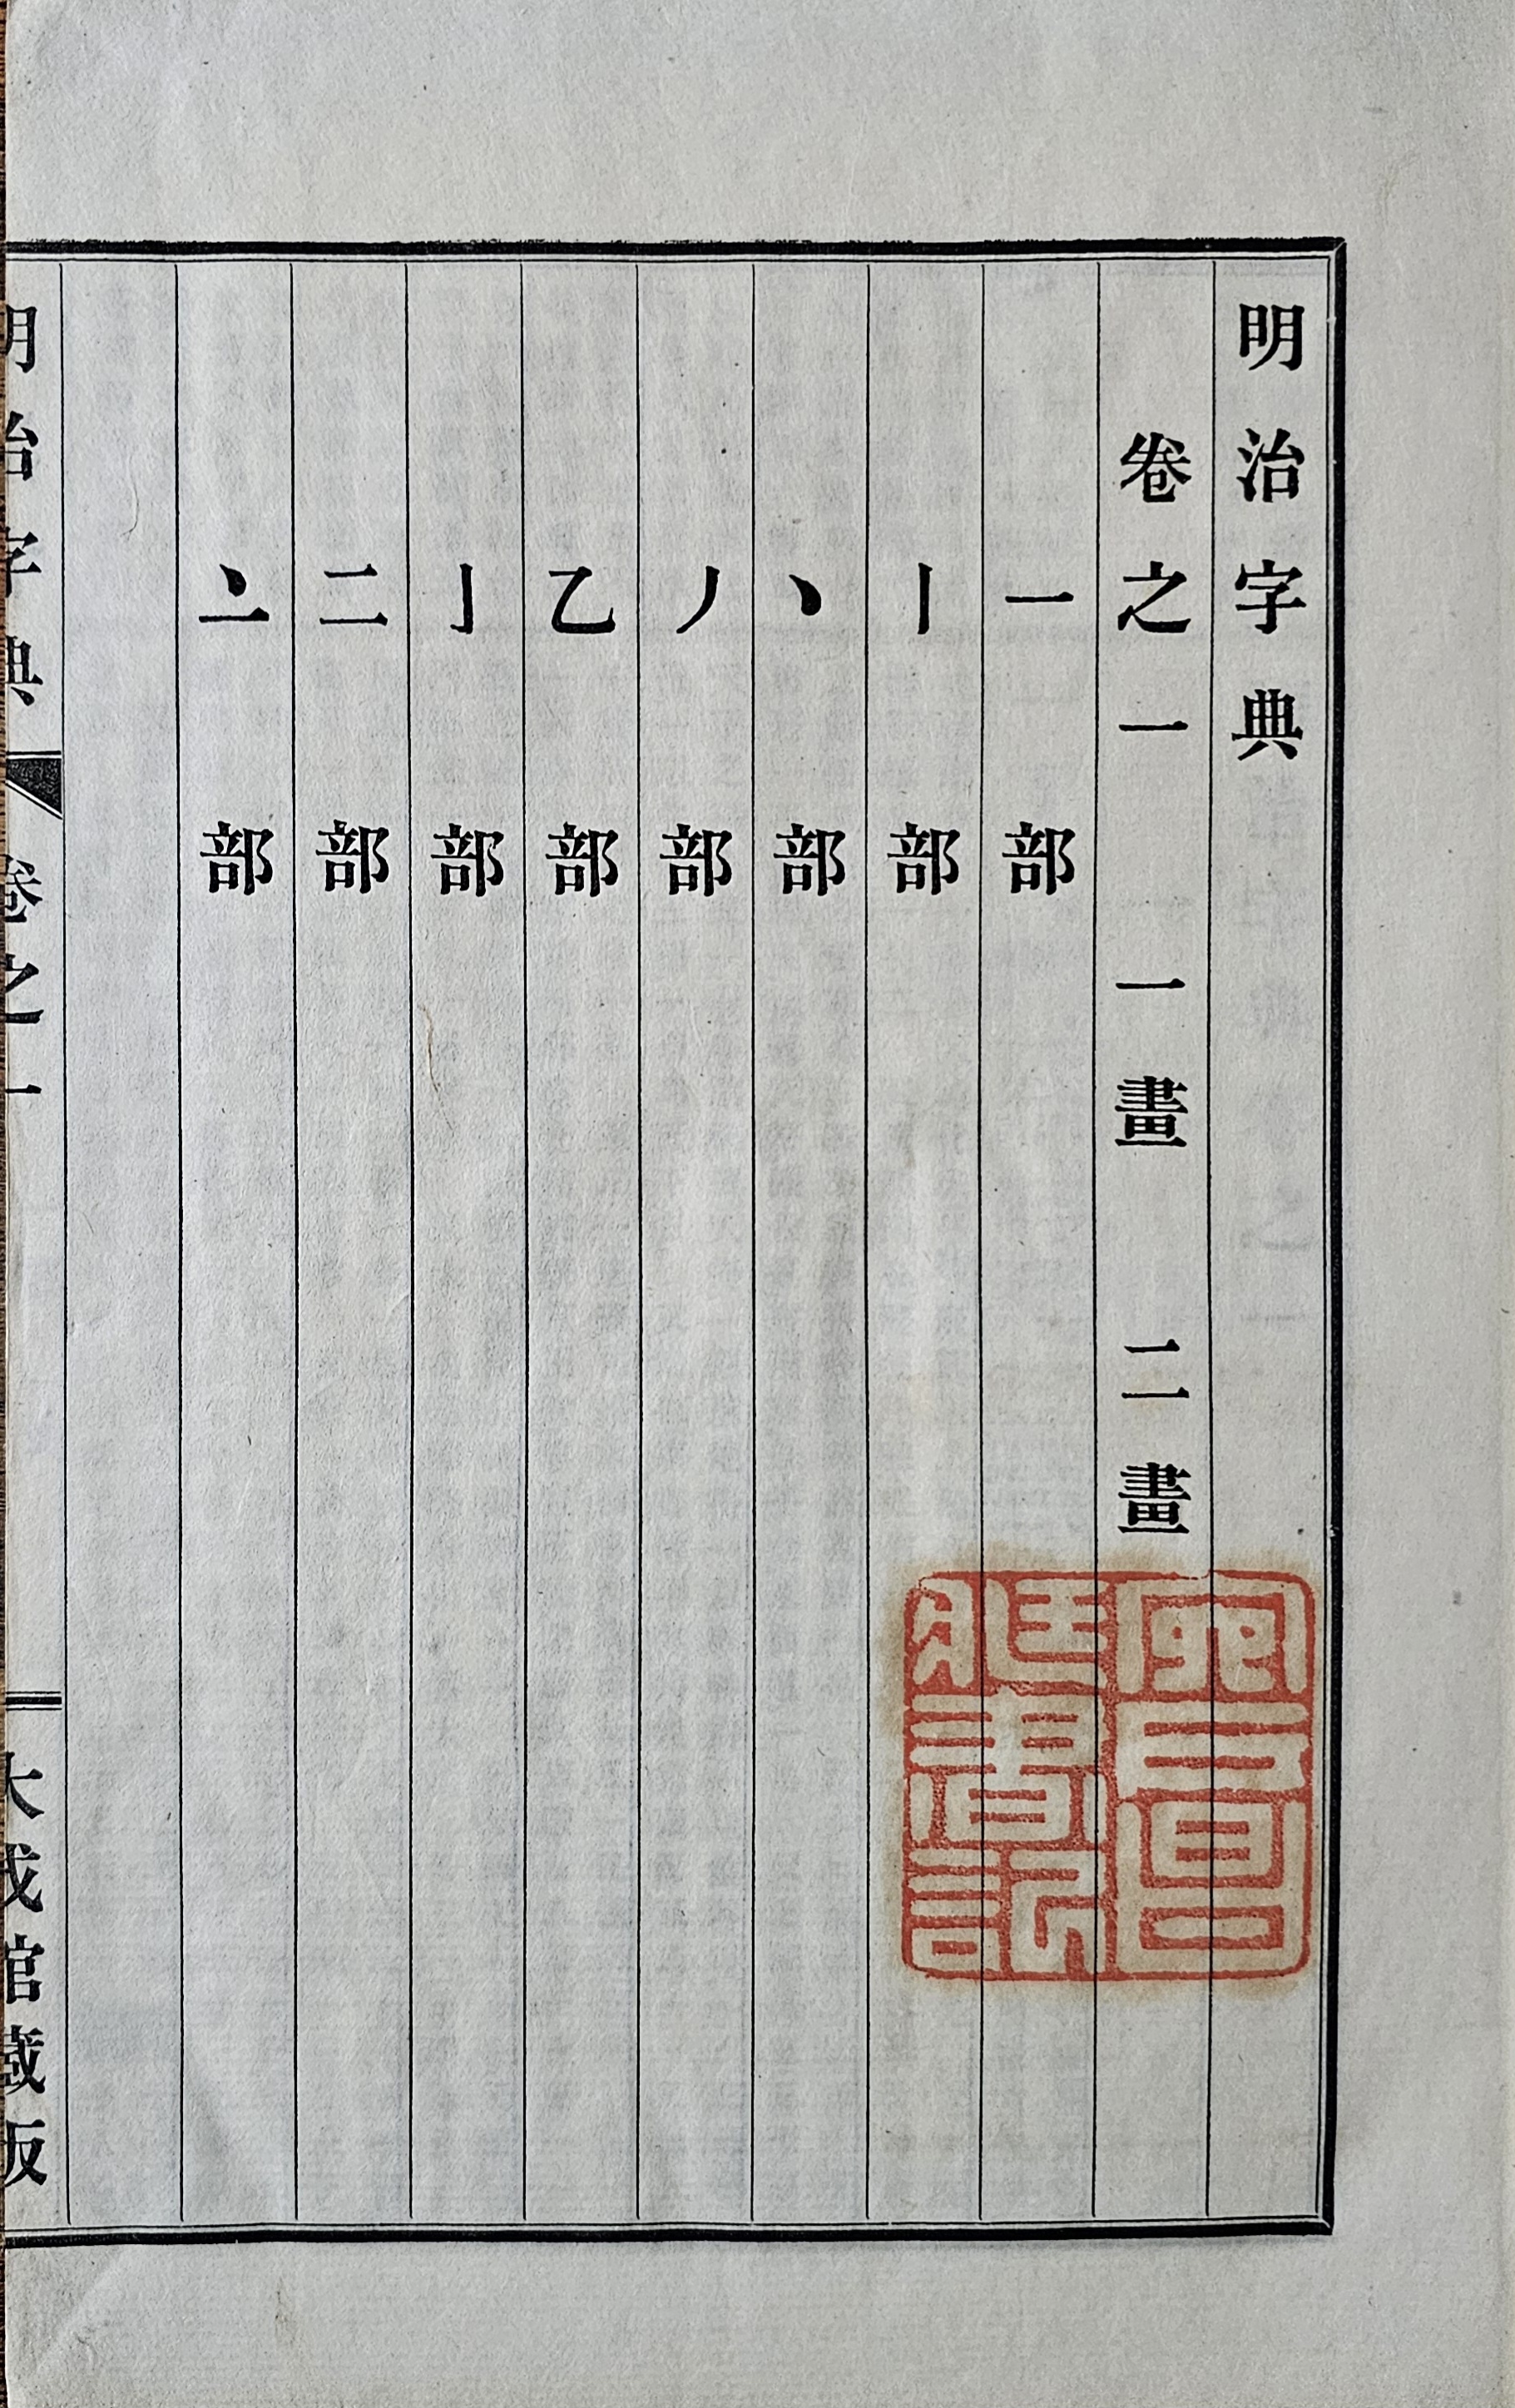 明治字典
卷之一 一畫 二畫
一部
丨部
丶部
丿部
乙部
亅部
二部
亠部
明治字典 卷之一 大成館藏版